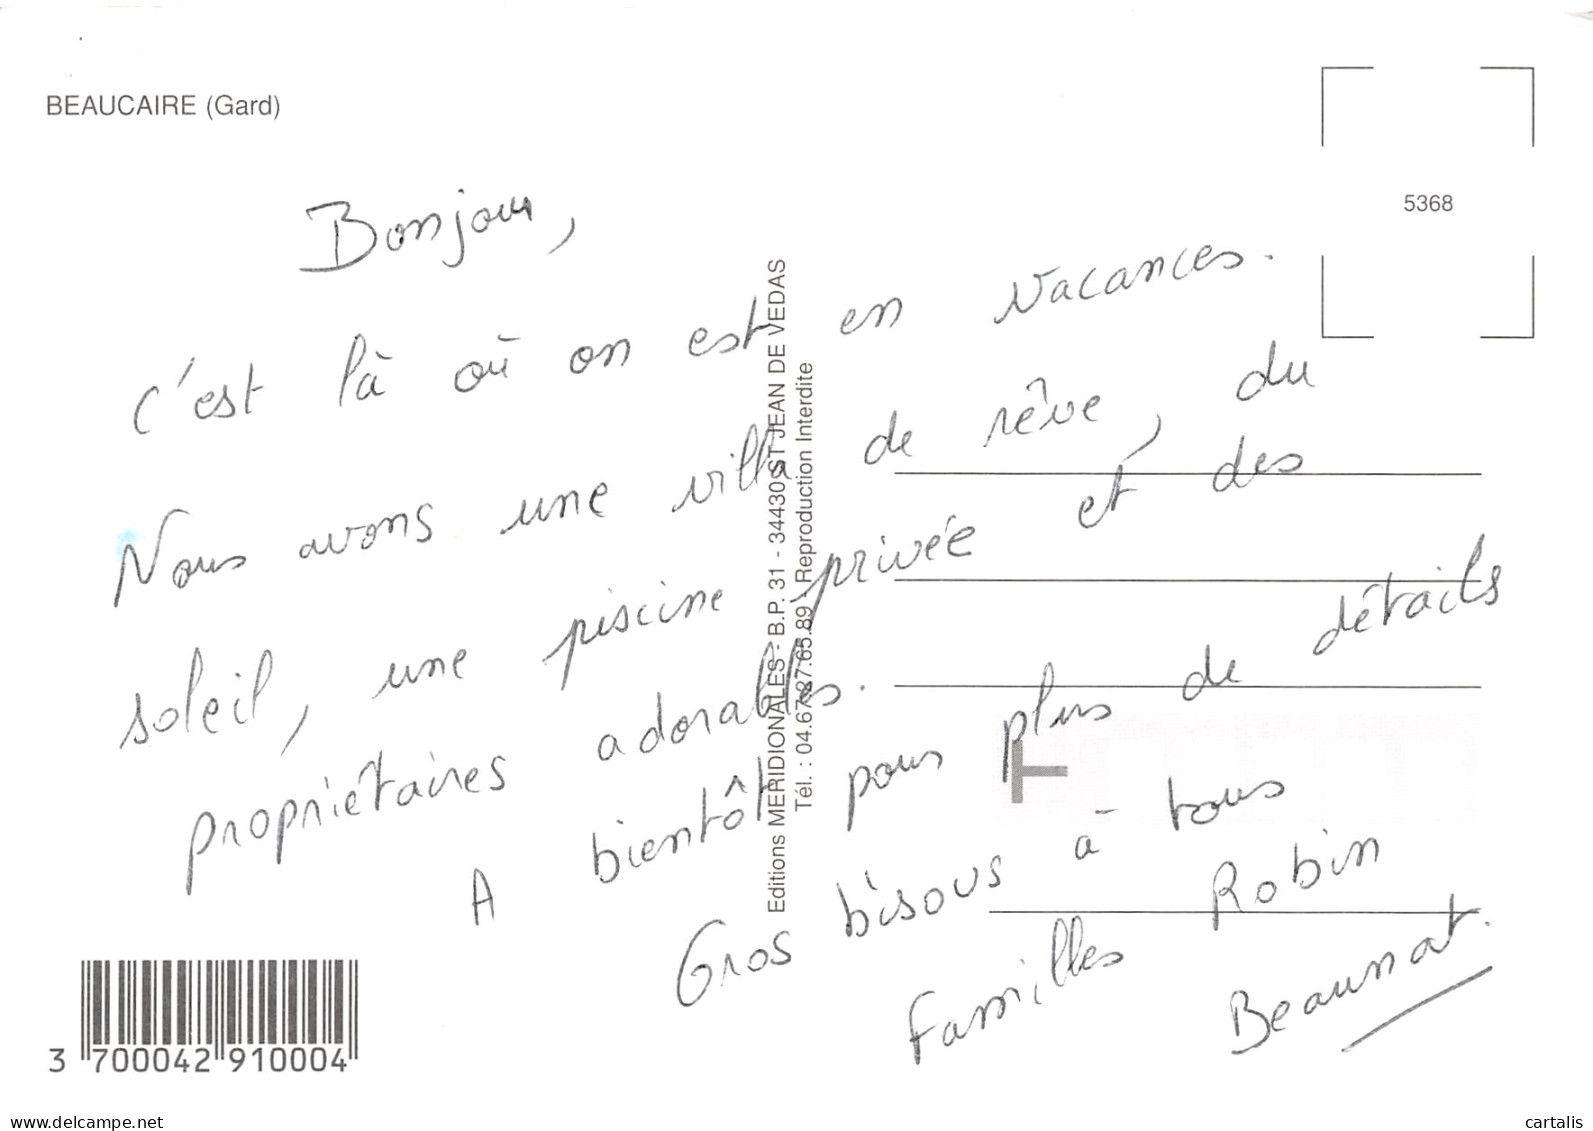 BEAUCAIRE (Gard)
5368
Bonjour,
c'est là où on est en vacances.
Nous avons une villa de rêve, du
soleil, une piscine privée et des
propriétaires adorables.
A bientôt pour plus de détails
Gros bisous à tous
Familles Robin
Beaumat.
Editions MERIDIONALES - B.P. 31 - 34430 ST JEAN DE VEDAS
Tél. : 04.67.27.65.89 - Reproduction Interdite
T
3 700042 910004
www.delcampe.net
cartalis